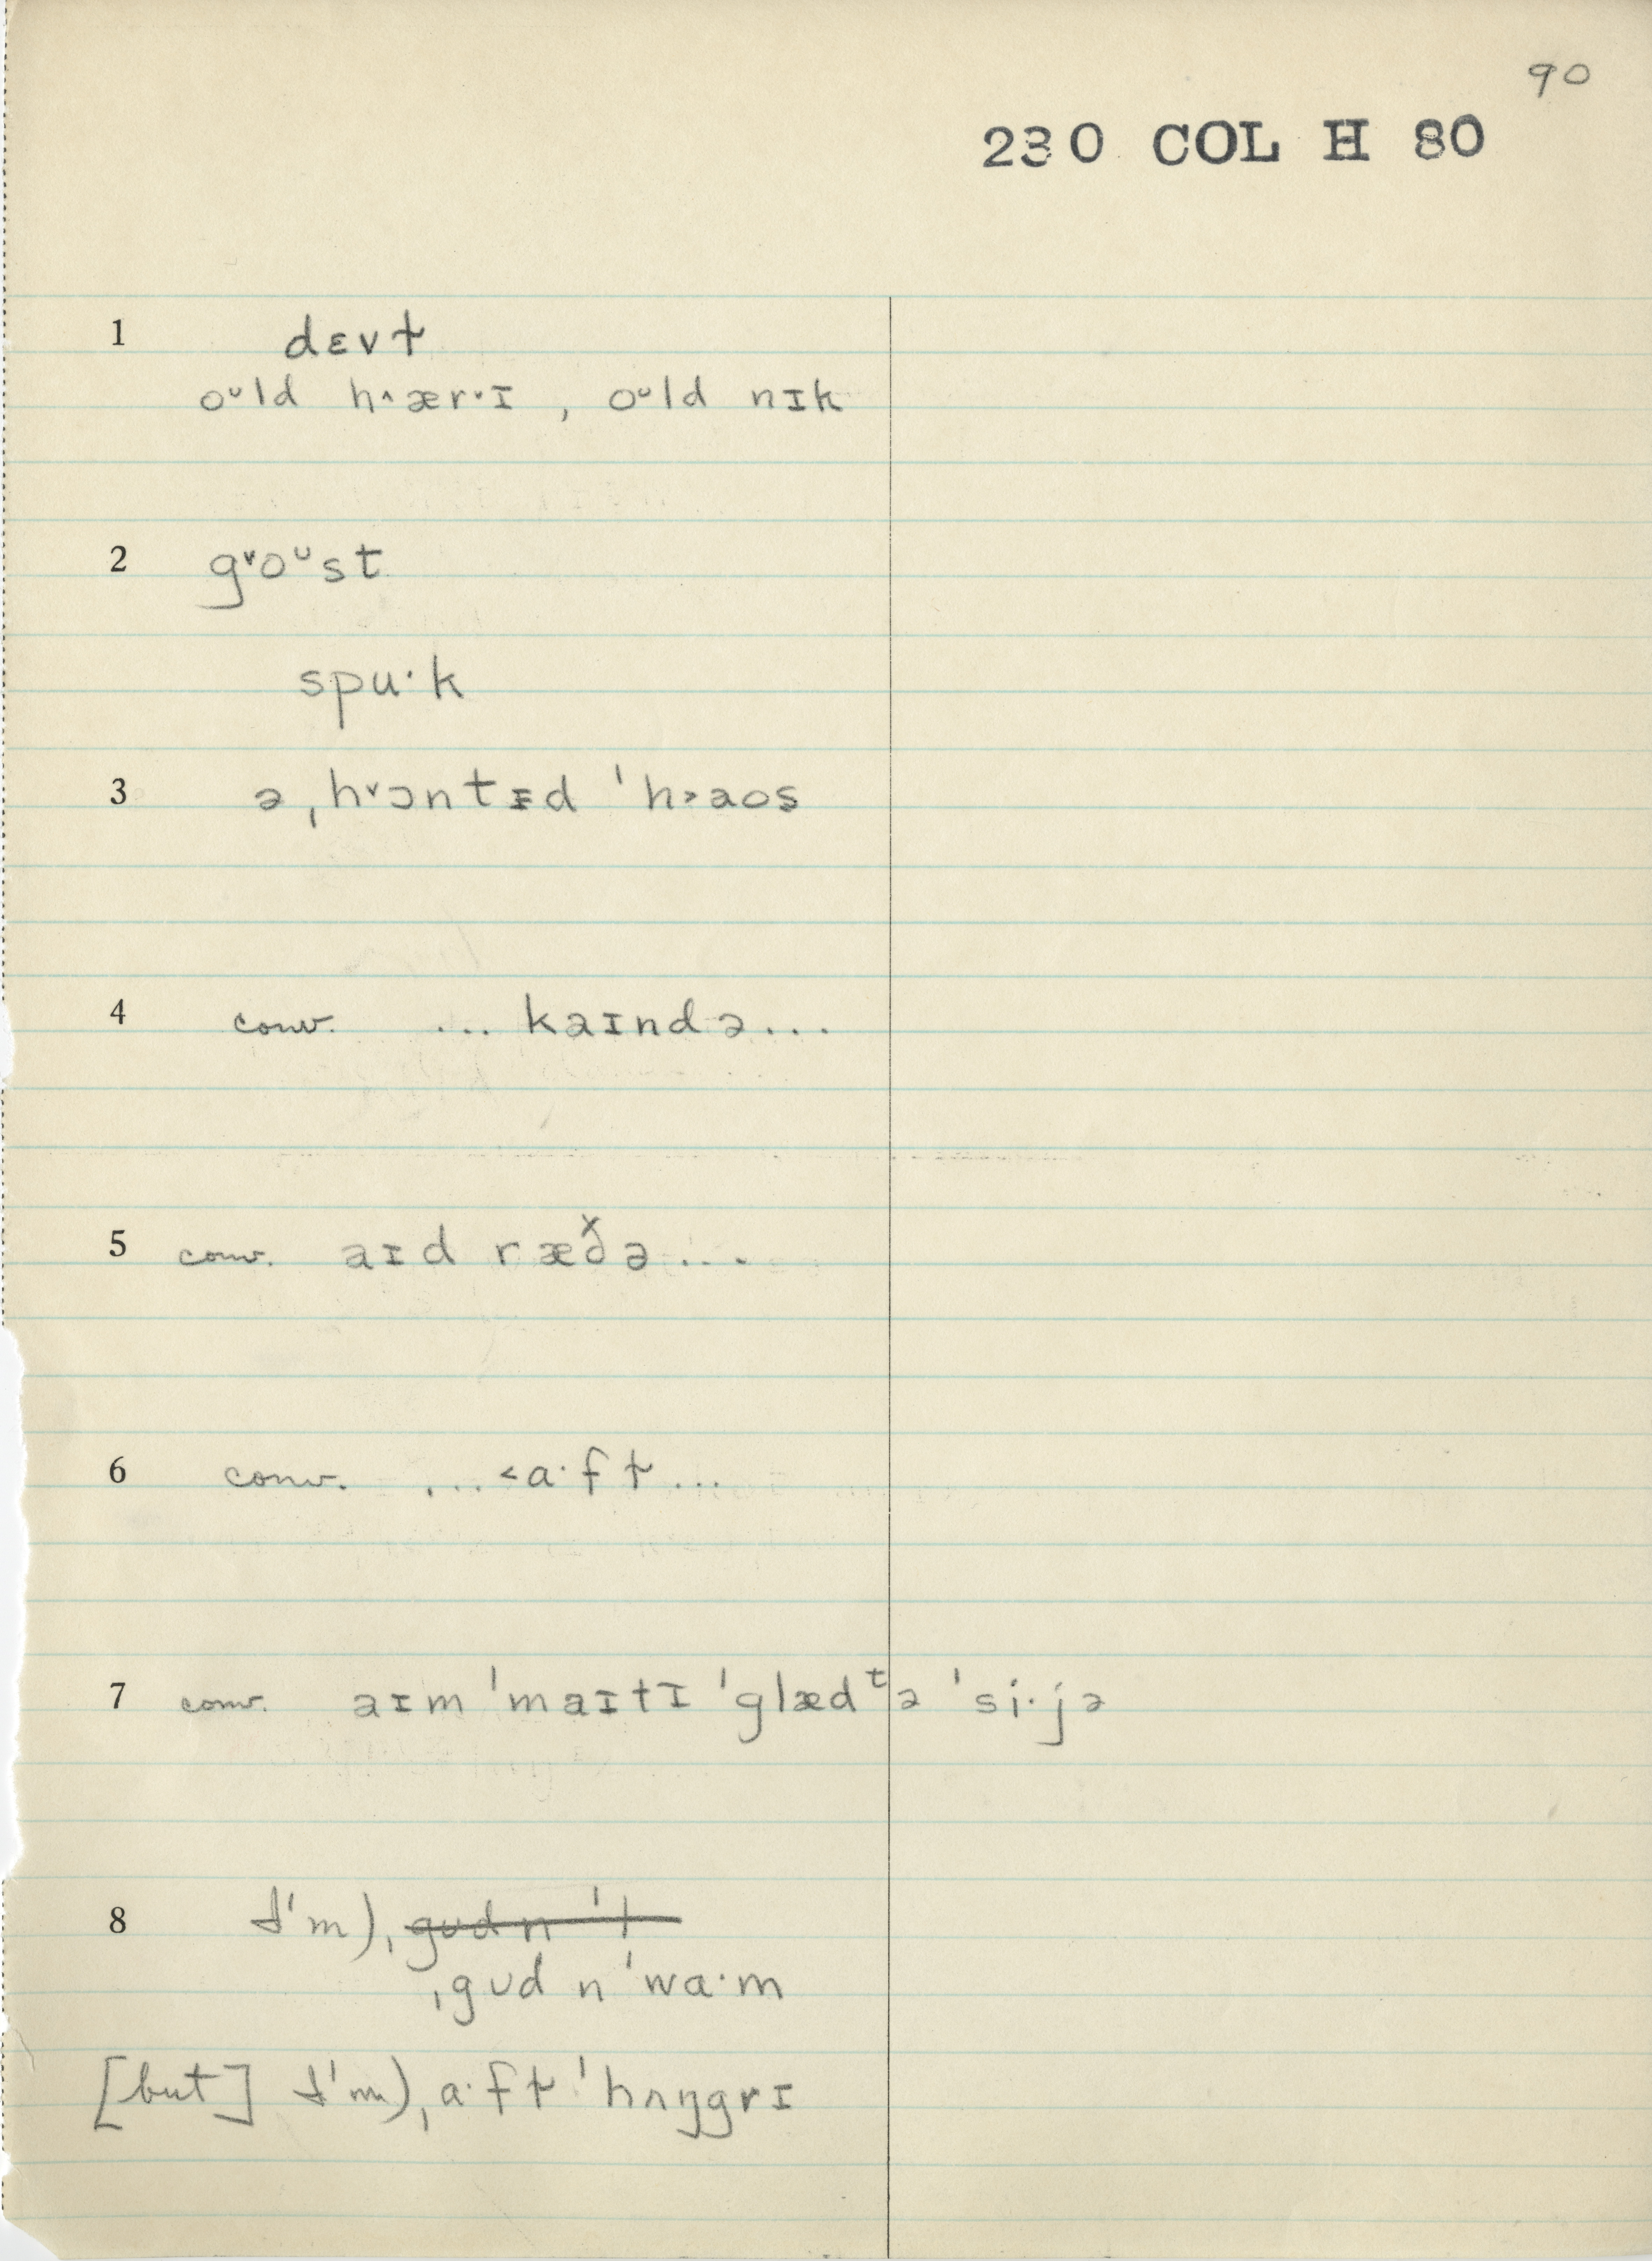 90
230 COL H 80
1 dɛvɫ
oᵁld h˄ær˅ɪ , oᵁld nɪk
2 g˅oᵁst
spu·k
3 ə ˌh˅ɔntɪd ˈh˃aos
4 conv. ... kaɪndə...
5 conv. aɪd ræð̌ə...
6 conv. ... ˂a·fɫ...
7 conv. aɪm ˈmaɪtɪ ˈglædᵗə ˈsi·jə
8 I'm), ˌgud n ˈt
ˌgᴜd n ˈwa·m
[but] I'm) ˌa·fɫ ˈhʌŋgrɪ